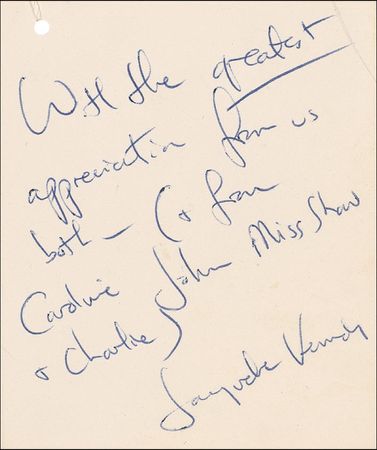 With the greatest
appreciation from us
both — (& from
Caroline John Miss Shaw
& Charlie)
Jacqueline Kennedy